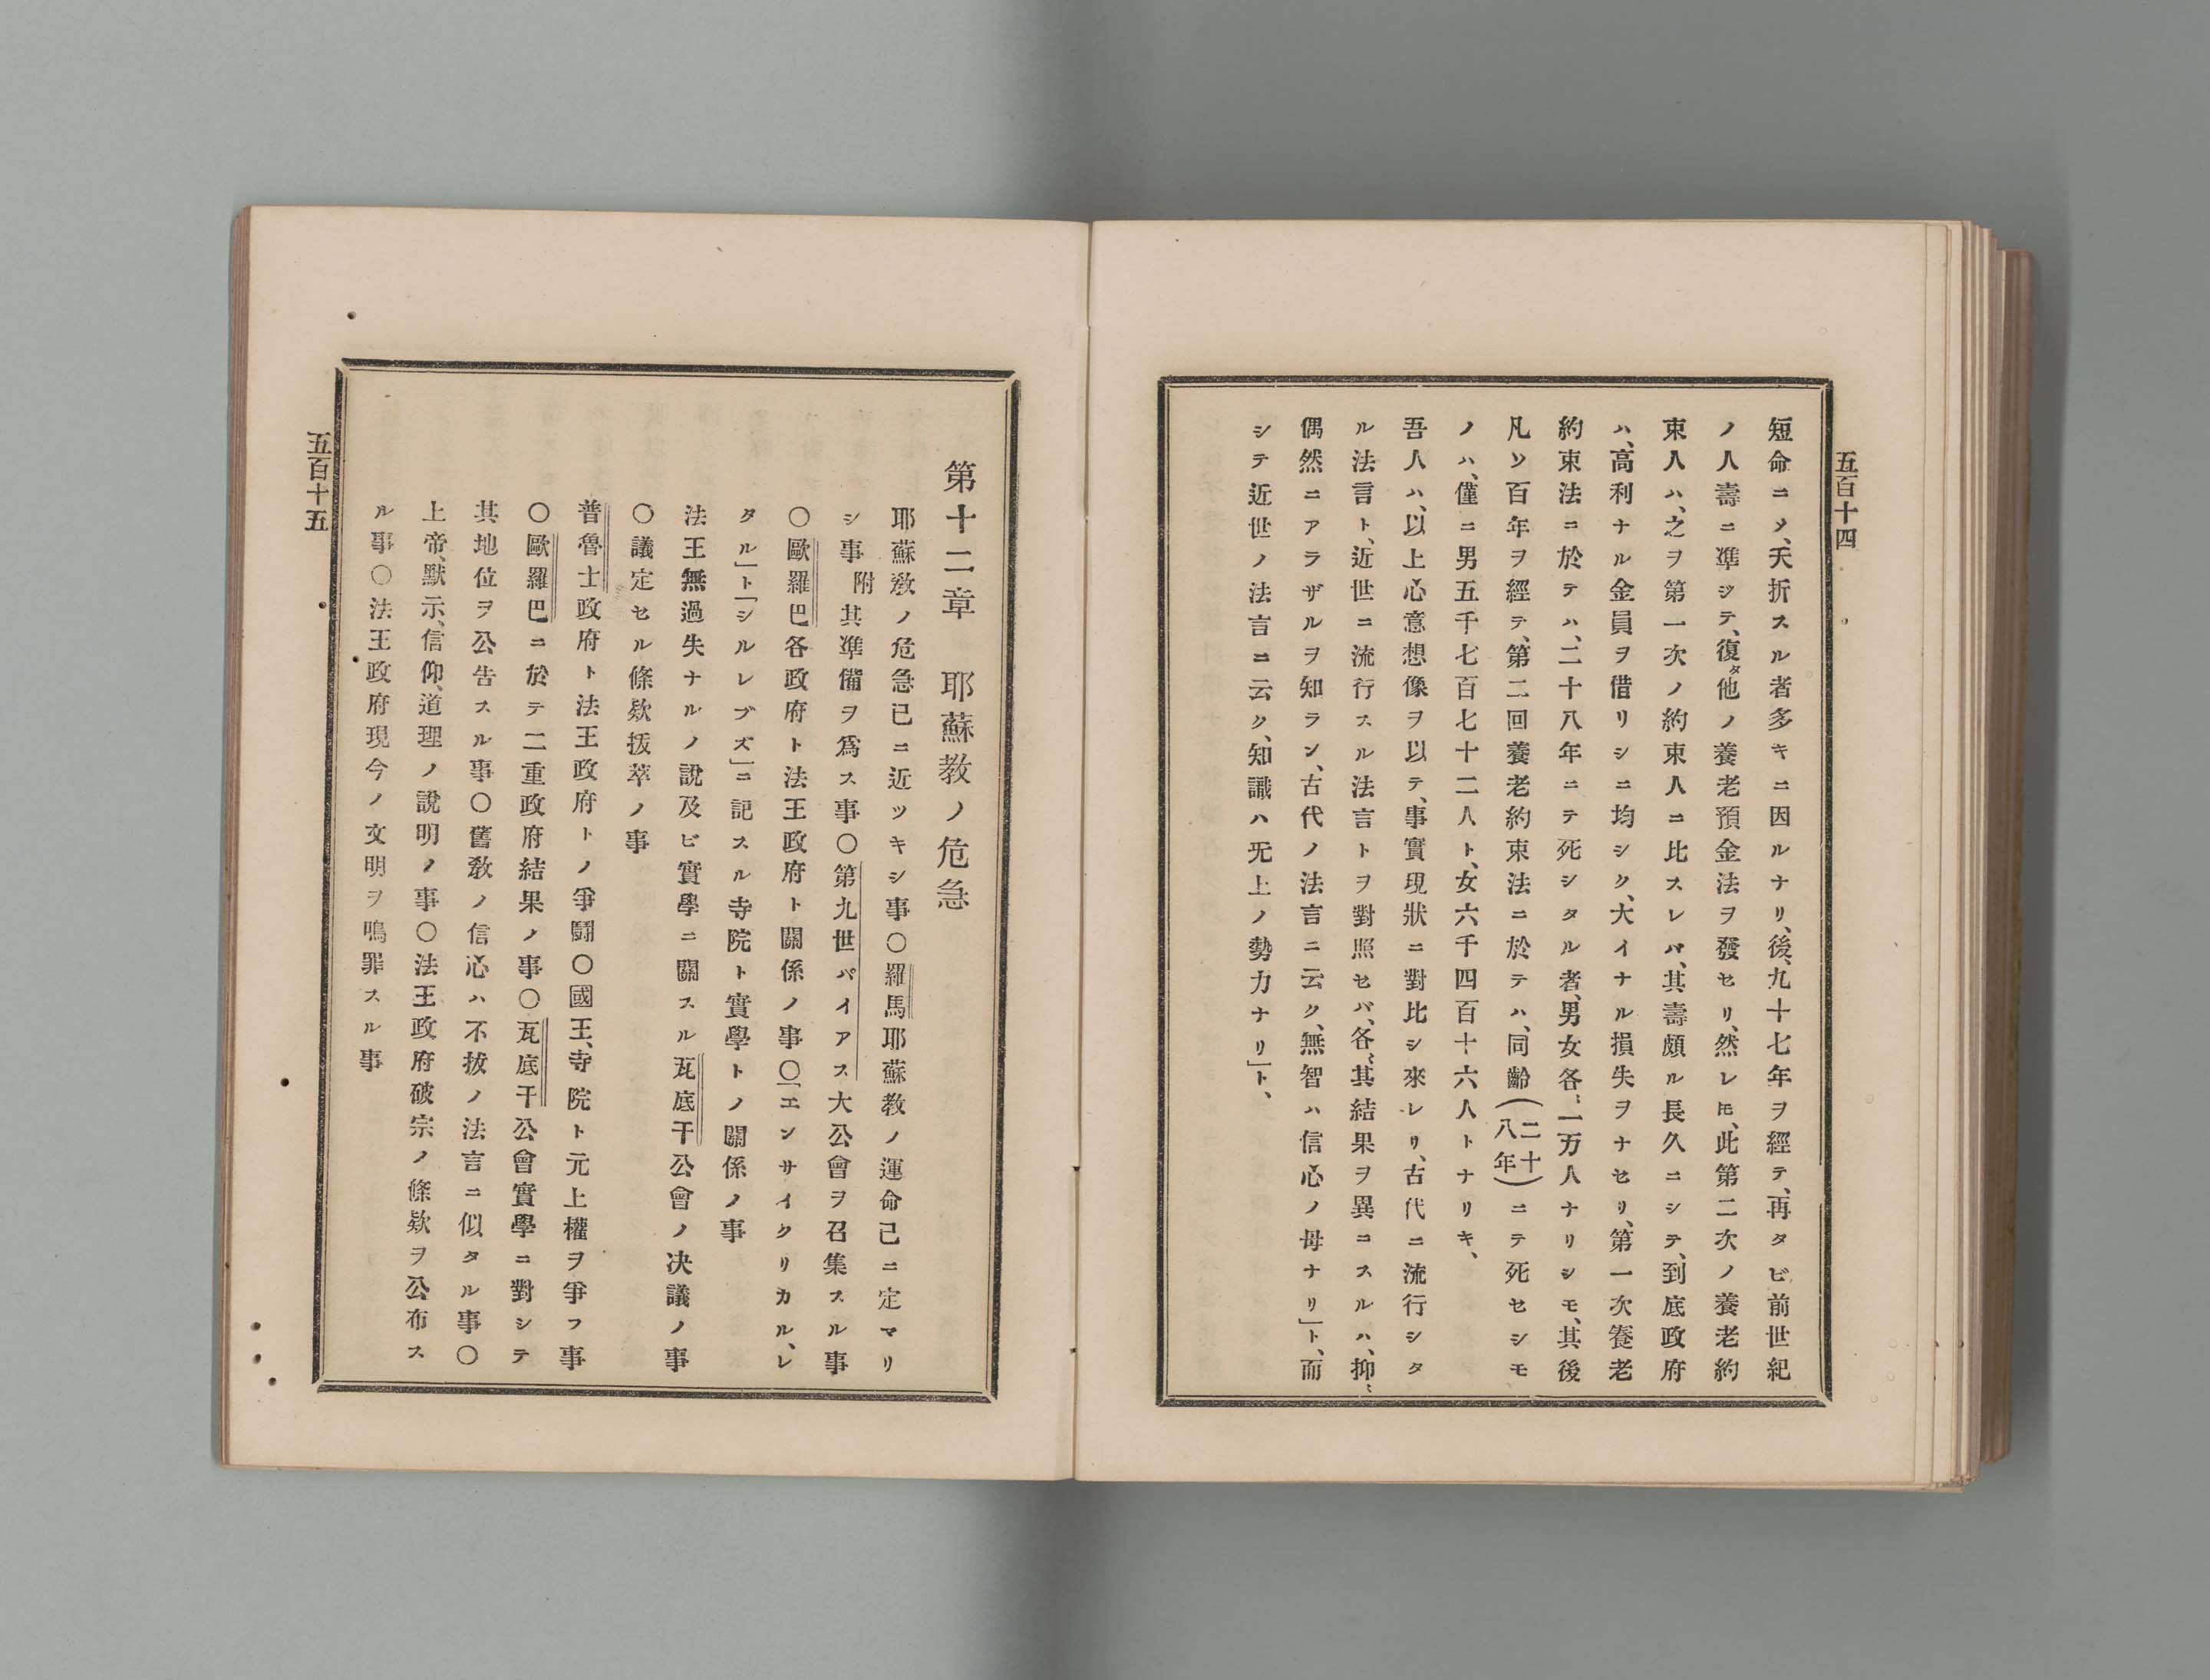 五百十四
短命ニメ、夭折スル者多キニ因ルナリ、後、九十七年ヲ經テ、再タビ前世紀
ノ人壽ニ準ジテ、復タ他ノ養老預金法ヲ發セリ、然レ𪜈、此第二次ノ養老約
束人ハ、之ヲ第一次ノ約束人ニ比スレバ、其壽頗ル長久ニシテ、到底政府
ハ、高利ナル金員ヲ借リシニ均シク、大イナル損失ヲナセリ、第一次養老
約束法ニ於テハ、二十八年ニテ死シタル者、男女各〻一万人ナリシモ、其後
凡ソ百年ヲ經テ、第二回養老約束法ニ於テハ、同齡(二十八年)ニテ死セシモ
ノハ、僅ニ男五千七百七十二人ト、女六千四百十六人トナリキ、
吾人ハ、以上心意想像ヲ以テ、事實現狀ニ對比シ來レリ、古代ニ流行シタ
ル法言ト、近世ニ流行スル法言トヲ對照セバ、各〻其結果ヲ異コスルハ、抑〻
偶然ニアラザルヲ知ラン、古代ノ法言ニ云ク、無智ハ信心ノ母ナリ」ト、而
シテ近世ノ法言ニ云ク、知識ハ无上ノ勢力ナリ」ト、
第十二章　耶蘇教ノ危急
耶蘇敎ノ危急已ニ近ツキシ事〇羅馬耶蘇教ノ運命己ニ定マリ
シ事　附　其準備ヲ爲ス事〇第九世パイアス大公會ヲ召集スル事
〇歐羅巴各政府ト法王政府ト關係ノ事〇「エンサイクリカル、レ
タル」ト「シルレブズ」ニ記スル寺院ト實學トノ關係ノ事
法王無過失ナルノ說及ビ實學ニ關スル瓦底干公會ノ决議ノ事
〇議定セル條欵拔萃ノ事
普魯士政府ト法王政府トノ爭鬪〇國王、寺院ト元上權ヲ爭フ事
〇歐羅巴ニ於テ二重政府結果ノ事〇瓦底干公會實學ニ對シテ
其地位ヲ公告スル事〇舊教ノ信心ハ不拔ノ法言ニ似タル事〇
上帝、默示、信仰、道理ノ說明ノ事〇法王政府破宗ノ條欵ヲ公布ス
ル事〇法王政府現今ノ文明ヲ鳴罪スル事
五百十五